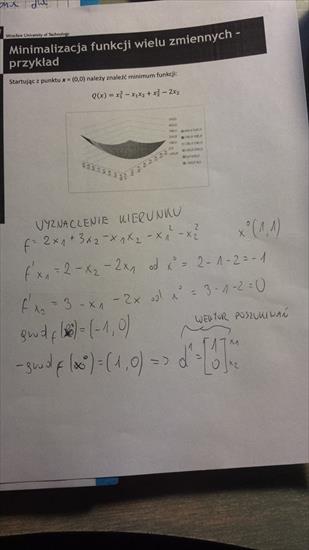 Wrocław University of Technology
Minimalizacja funkcji wielu zmiennych -
przykład
Startując z punktu x = (0,0) należy znaleźć minimum funkcji:
Q(x) = x₁² − x₁x₂ + x₂² − 2x₂
WYZNACZENIE KIERUNKU
f = 2x₁ + 3x₂ - x₁x₂ - x₁² - x₂² x⁰(1,1)
f'x₁ = 2 - x₂ - 2x₁ od x⁰ = 2 - 1 - 2 = -1
f'x₂ = 3 - x₁ - 2x od x⁰ = 3 - 1 - 2 = 0
grad f (x⁰) = (-1, 0)
WEKTOR POSZUKIWAŃ
-grad f (x⁰) = (1, 0) => d¹ = [1 0] x₁ x₂